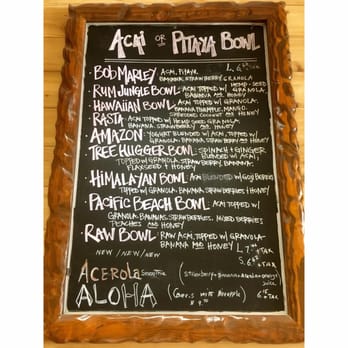 ACAI OR PITAYA BOWL
• BOB MARLEY ACAI, PITAYA, L. 6
BANANA, STRAWBERRY GRANOLA
• RUM JUNGLE BOWL: ACAI TOPPED W/ HEMP-SEED GRANOLA
BANANA AND HONEY
• HAWAIIAN BOWL: ACAI TOPPED W/ GRANOLA-
BANANA PINEAPPLE, MANGO,
SHREDDED COCONUT AND HONEY
• RASTA ACAI TOPPED W/ HEMP SEED GRANOLA,
BANANA, STRAWBERRY AND HONEY
• AMAZON: YOGURT BLENDED W/ ACAI, TOPPED W/
GRANOLA- BANANA STRAW BERRY AND HONEY
• TREE HUGGER BOWL: SPINACH & GINGER
BLENDED W/ ACAI,
TOPPED W/ GRANOLA, STRAWBERRY, BANANA,
• HIMALAYAN BOWL ACAI BLENDED W/ GOJI BERRIES
TOPPED W/ GRANOLA- BANANA, STRAWBERRIES & HONEY
• PACIFIC BEACH BOWL ACAI TOPPED W/
GRANOLA- BANANAS, STRAWBERRIES, MIXED BERRIES
PEACHES AND HONEY
• RAW BOWL: RAW ACAI, TOPPED W/ GRANOLA-
BANANA AND HONEY L. 7 + TAX
NEW /NEW /NEW S. 6 + TAX
ACEROLA SMOOTHIE (STRAWBERRY + BANANA + ACEROLA + ORANGE
JUICE
ALOHA 6 + TAX